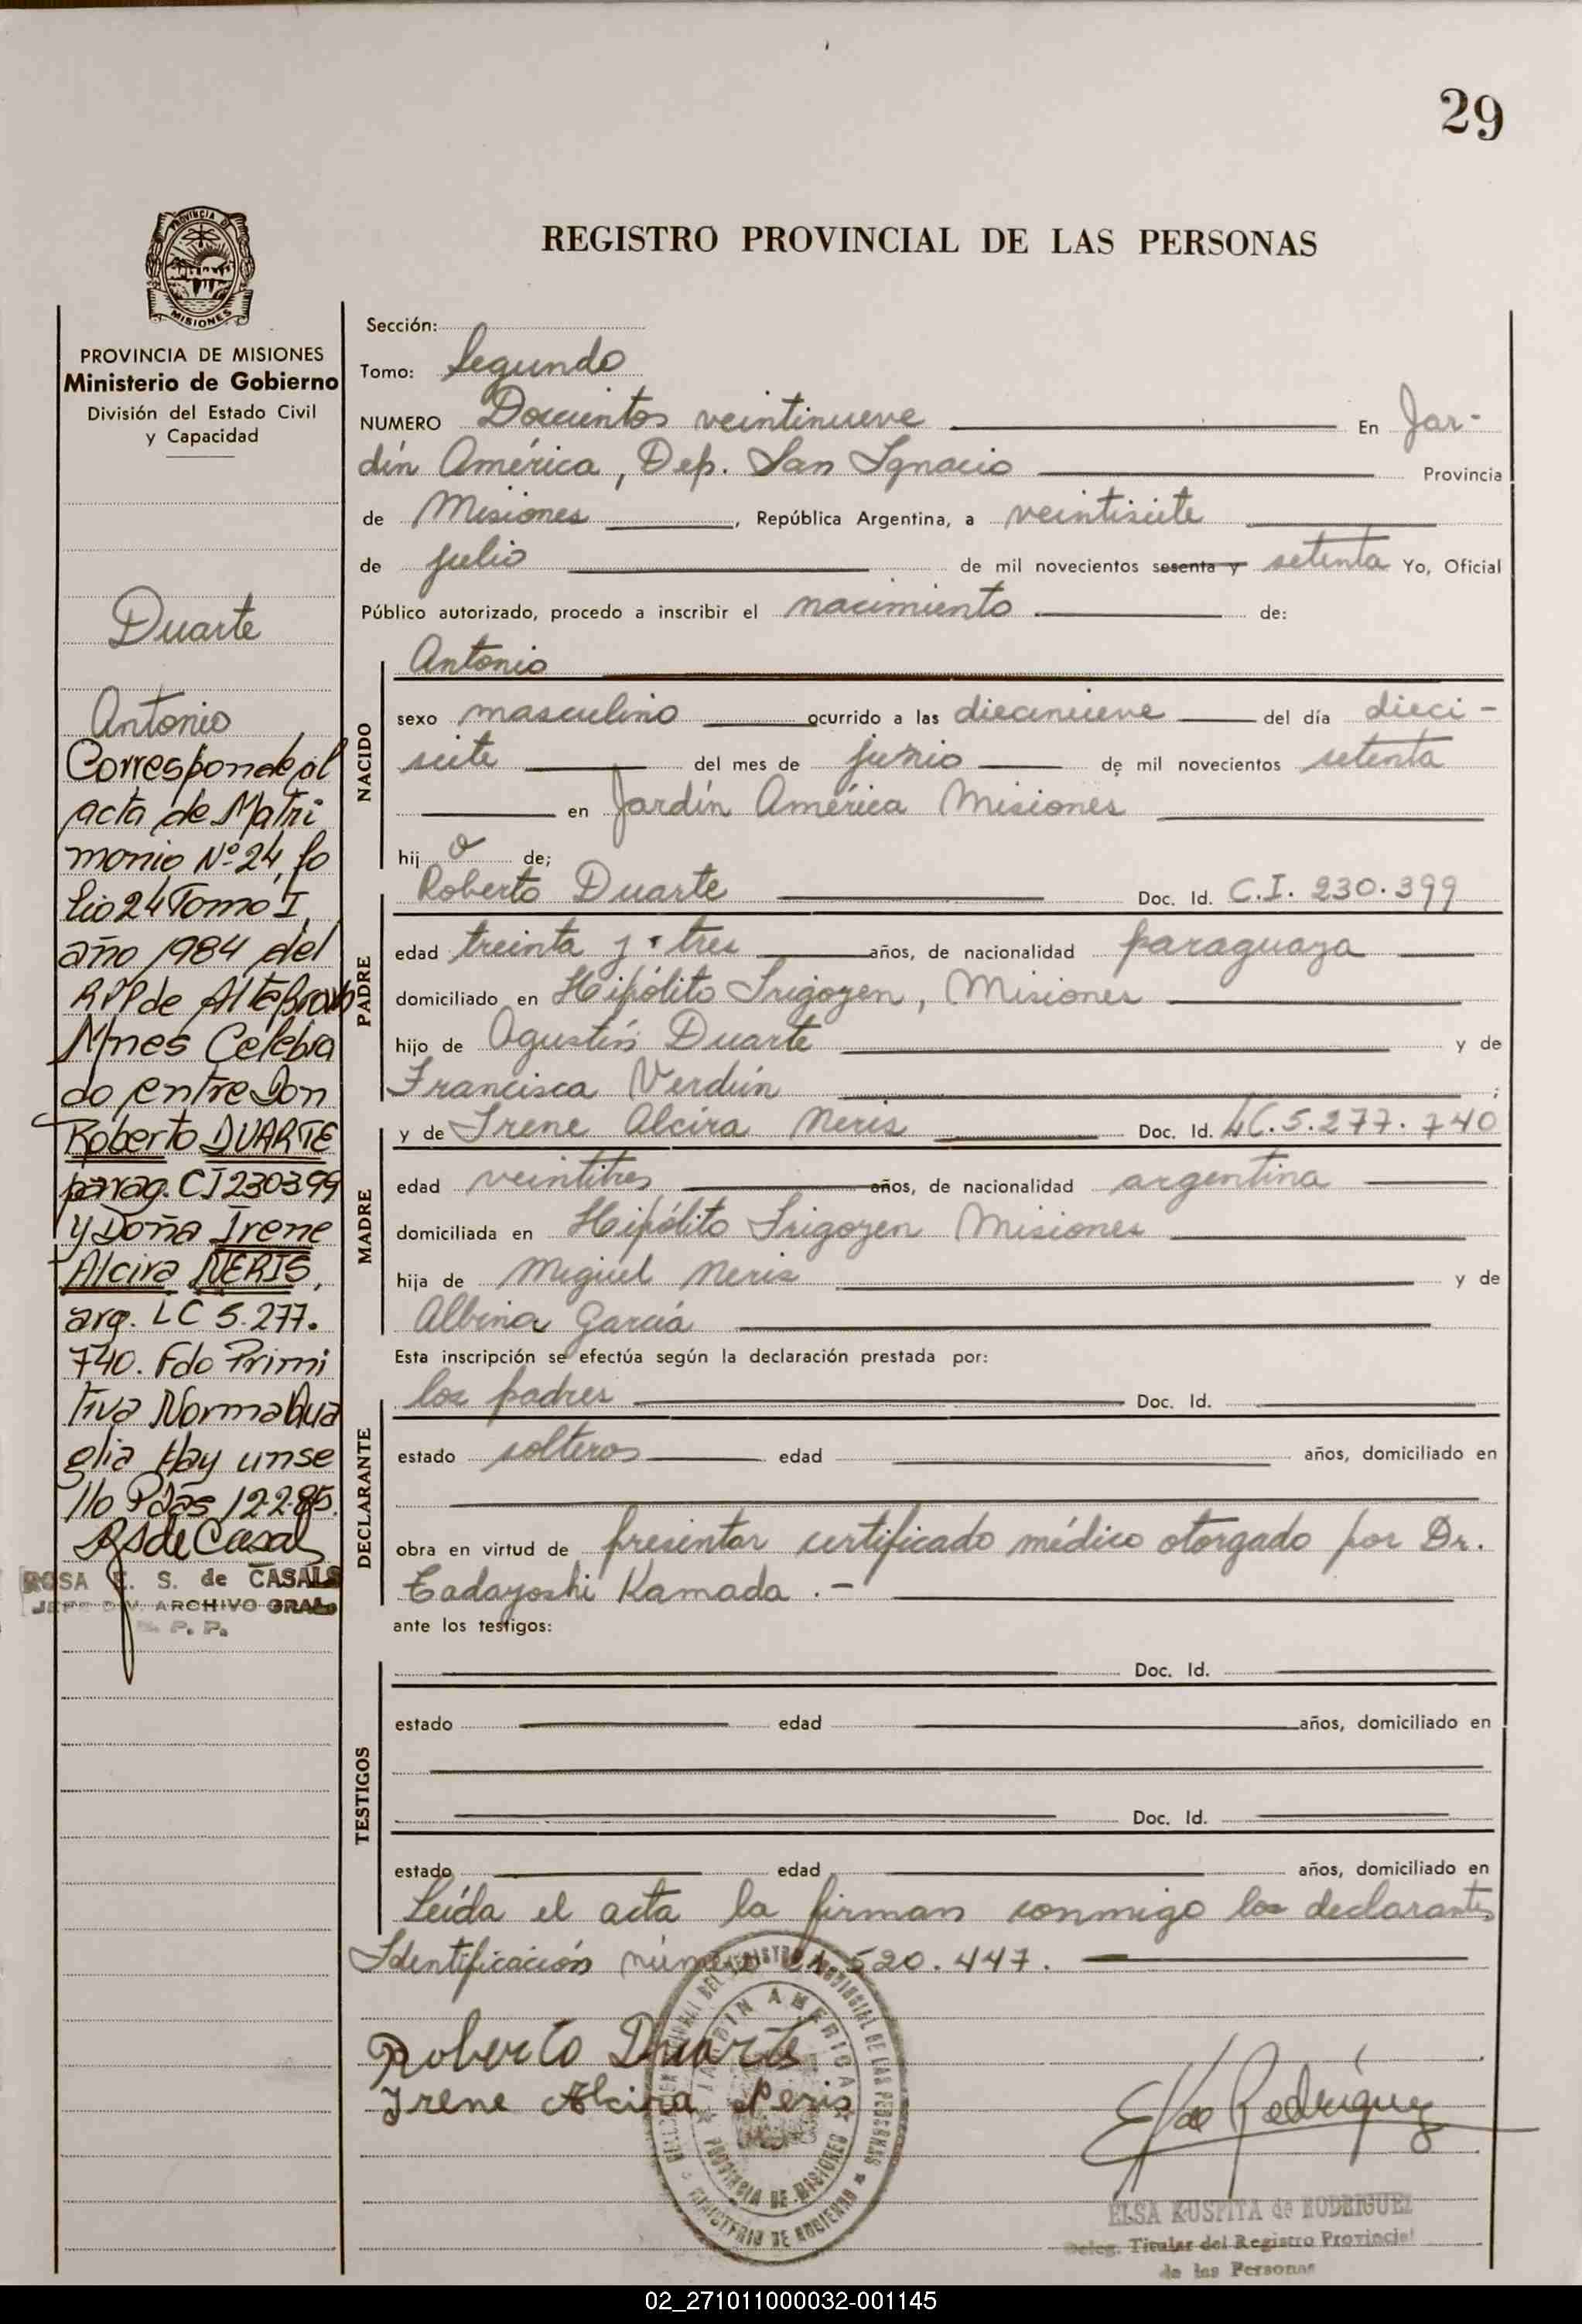 29
REGISTRO PROVINCIAL DE LAS PERSONAS
PROVINCIA DE MISIONES
Ministerio de Gobierno
División del Estado Civil
y Capacidad
Duarte
Antonio
Corresponde al
acta de Matri
monio Nº 24, fo
lio 24 Tomo I,
año 1984 del
RPP de Alte Brown
Mnes Celebra
do entre Don
Roberto DUARTE
parag. CI 230399
y Doña Irene
Alcira NERIS,
arg. LC 5.277.
740. Fdo Primi
tiva Norma
Hay unse
llo Pdas, 12-2-85.
RS de Casals
ROSA E. S. de CASALS
JEFE DIV. ARCHIVO GRAL.
R. P. P.
Sección:
Tomo: Segundo
NUMERO Doscientos veintinueve En Jar-
dín América, Dep. San Ignacio Provincia
de Misiones, República Argentina, a veintisiete
de julio de mil novecientos sesenta y setenta Yo, Oficial
Público autorizado, procedo a inscribir el nacimiento de:
NACIDO
Antonio
sexo masculino ocurrido a las diecinueve del día dieci-
siete del mes de junio de mil novecientos setenta
en Jardín América Misiones
hijo de;
PADRE
Roberto Duarte Doc. Id. C.I. 230.399
edad treinta y tres años, de nacionalidad paraguaya
domiciliado en Hipólito Irigoyen, Misiones
hijo de Agustín Duarte y de
Francisca Verdún ;
MADRE
y de Irene Alcira Neris Doc. Id. LC.5.277.740
edad veintitres años, de nacionalidad argentina
domiciliada en Hipólito Irigoyen Misiones
hija de Miguel Neris y de
Albina García
Esta inscripción se efectúa según la declaración prestada por:
DECLARANTE
los padres Doc. Id.
estado solteros edad años, domiciliado en
obra en virtud de presentar certificado médico otorgado por Dr.
Tadayoshi Kamada .-
ante los testigos:
TESTIGOS
Doc. Id.
estado edad años, domiciliado en
Doc. Id.
estado edad años, domiciliado en
Leída el acta la firman conmigo los declarantes
Identificación número 21.520.447.
Roberto Duarte
Irene Alcira Neris
E K de Rodríguez
ELSA KUSPITA de RODRIGUEZ
Deleg. Titular del Registro Provincial
de las Personas
JARDIN AMERICA
PROVINCIA DE MISIONES
MINISTERIO DE GOBIERNO
02_271011000032-001145